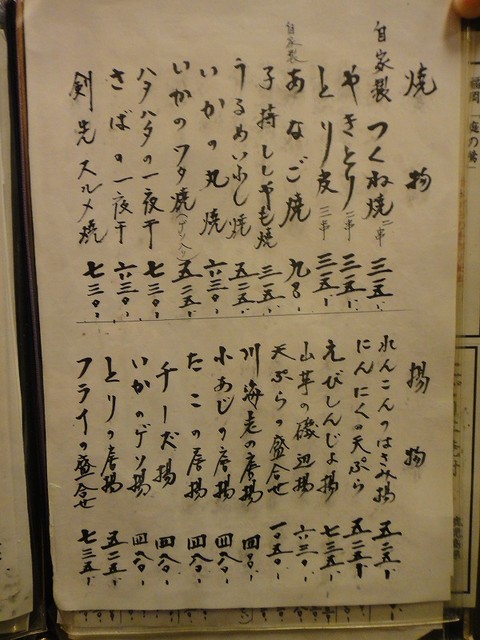 焼物
自家製 つくね焼 二串 三一五、
やきとり 二串 三一五、
とり皮 三串 三一五、
自家製 あなご焼
子持ししゃも焼 三一五、
うるめいわし焼 五二五、
いかの丸焼 六三〇、
いかのワタ焼(ゲソ入り) 五二五、
ハタハタの一夜干 七三〇、
さばの一夜干 六三〇、
剣先スルメ焼 七三〇、
揚物
れんこんのはさみ揚 五二五、
にんにくの天ぷら 五二五、
えびしんじょ揚 七三五、
山芋の磯辺揚 六三〇、
天ぷらの盛合せ 一〇五〇、
川海老の唐揚
小あじの唐揚 四八〇、
たこの唐揚 四八〇、
チーズ揚 四八〇、
いかのゲソ揚 四八〇、
とりの唐揚 五二五、
フライの盛合せ 七三五、